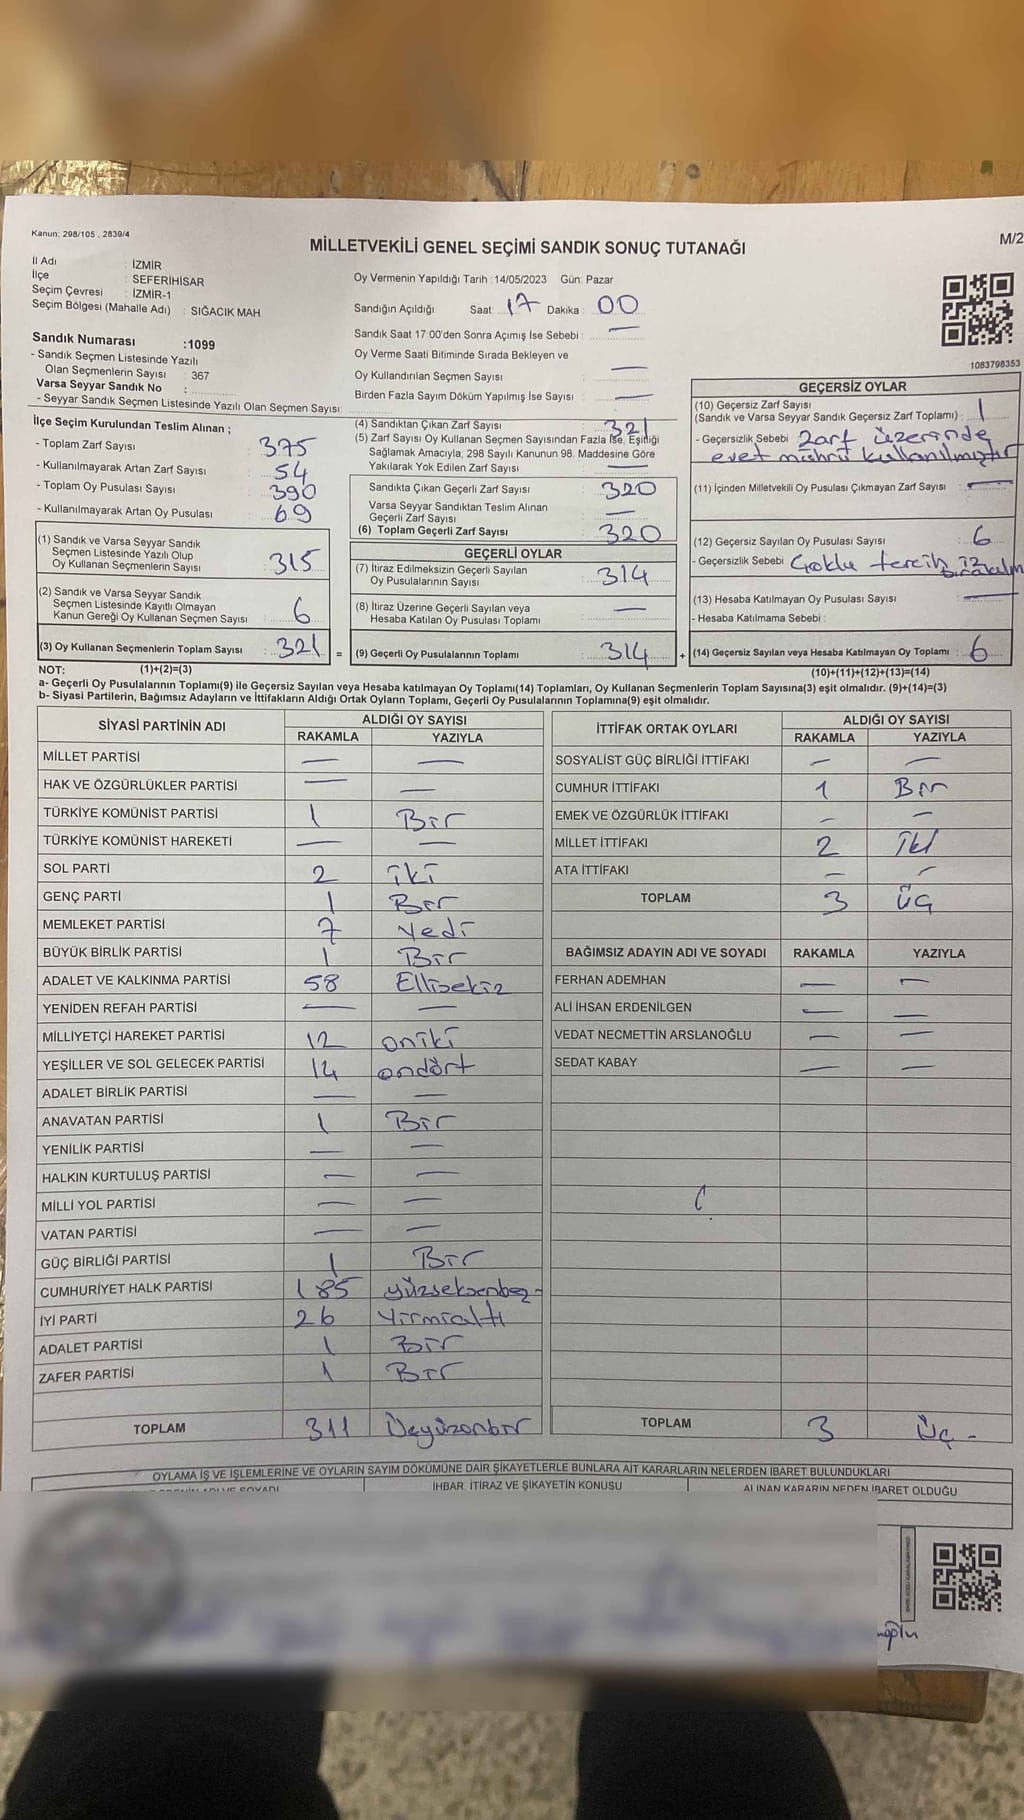 Kanun: 298/105 , 2839/4
MİLLETVEKİLİ GENEL SEÇİMİ SANDIK SONUÇ TUTANAĞI
M/2
İl Adı : İZMİR
İlçe : SEFERİHİSAR
Seçim Çevresi : İZMİR-1
Seçim Bölgesi (Mahalle Adı) : SIĞACIK MAH.
Oy Vermenin Yapıldığı Tarih :14/05/2023 Gün: Pazar
Sandığın Açıldığı Saat: 17 Dakika: 00
Sandık Saat 17:00'den Sonra Açımış İse Sebebi : —
Oy Verme Saati Bitiminde Sırada Bekleyen ve
Oy Kullandırılan Seçmen Sayısı : —
Birden Fazla Sayım Döküm Yapılmış İse Sayısı : —
1083798353
Sandık Numarası :1099
- Sandık Seçmen Listesinde Yazılı
Olan Seçmenlerin Sayısı : 367
Varsa Seyyar Sandık No :
- Seyyar Sandık Seçmen Listesinde Yazılı Olan Seçmen Sayısı:
İlçe Seçim Kurulundan Teslim Alınan ;
- Toplam Zarf Sayısı : 375
- Kullanılmayarak Artan Zarf Sayısı : 54
- Toplam Oy Pusulası Sayısı : 390
- Kullanılmayarak Artan Oy Pusulası : 69
(1) Sandık ve Varsa Seyyar Sandık
Seçmen Listesinde Yazılı Olup
Oy Kullanan Seçmenlerin Sayısı : 315
(2) Sandık ve Varsa Seyyar Sandık
Seçmen Listesinde Kayıtlı Olmayan
Kanun Gereği Oy Kullanan Seçmen Sayısı : 6
(3) Oy Kullanan Seçmenlerin Toplam Sayısı : 321 =
(4) Sandıktan Çıkan Zarf Sayısı : 321
(5) Zarf Sayısı Oy Kullanan Seçmen Sayısından Fazla İse, Eşitliği
Sağlamak Amacıyla, 298 Sayılı Kanunun 98. Maddesine Göre
Yakılarak Yok Edilen Zarf Sayısı : —
Sandıkta Çıkan Geçerli Zarf Sayısı : 320
Varsa Seyyar Sandıktan Teslim Alınan
Geçerli Zarf Sayısı : —
(6) Toplam Geçerli Zarf Sayısı : 320
GEÇERLİ OYLAR
(7) İtiraz Edilmeksizin Geçerli Sayılan
Oy Pusulalarının Sayısı : 314
(8) İtiraz Üzerine Geçerli Sayılan veya
Hesaba Katılan Oy Pusulaları Toplamı : —
(9) Geçerli Oy Pusulalarının Toplamı : 314 +
GEÇERSİZ OYLAR
(10) Geçersiz Zarf Sayısı
(Sandık ve Varsa Seyyar Sandık Geçersiz Zarf Toplamı) : 1
- Geçersizlik Sebebi : zarf üzerinde
evet mührü kullanılmıştır
(11) İçinden Milletvekili Oy Pusulası Çıkmayan Zarf Sayısı : —
(12) Geçersiz Sayılan Oy Pusulası Sayısı : 6
- Geçersizlik Sebebi : Çoklu tercih
(13) Hesaba Katılmayan Oy Pusulası Sayısı : —
- Hesaba Katılmama Sebebi :
(14) Geçersiz Sayılan veya Hesaba Katılmayan Oy Toplamı : 6
NOT: (1)+(2)=(3) (10)+(11)+(12)+(13)=(14)
a- Geçerli Oy Pusulalarının Toplamı(9) ile Geçersiz Sayılan veya Hesaba katılmayan Oy Toplamı(14) Toplamları, Oy Kullanan Seçmenlerin Toplam Sayısına(3) eşit olmalıdır. (9)+(14)=(3)
b- Siyasi Partilerin, Bağımsız Adayların ve İttifakların Aldığı Ortak Oyların Toplamı, Geçerli Oy Pusulalarının Toplamına(9) eşit olmalıdır.
SİYASİ PARTİNİN ADI ALDIĞI OY SAYISI
RAKAMLA YAZIYLA
MİLLET PARTİSİ — —
HAK VE ÖZGÜRLÜKLER PARTİSİ — —
TÜRKİYE KOMÜNİST PARTİSİ 1 Bir
TÜRKİYE KOMÜNİST HAREKETİ — —
SOL PARTİ 2 iki
GENÇ PARTİ 1 Bir
MEMLEKET PARTİSİ 7 Yedi
BÜYÜK BİRLİK PARTİSİ 1 Bir
ADALET VE KALKINMA PARTİSİ 58 Ellisekiz
YENİDEN REFAH PARTİSİ — —
MİLLİYETÇİ HAREKET PARTİSİ 12 oniki
YEŞİLLER VE SOL GELECEK PARTİSİ 14 ondört
ADALET BİRLİK PARTİSİ — —
ANAVATAN PARTİSİ 1 Bir
YENİLİK PARTİSİ — —
HALKIN KURTULUŞ PARTİSİ — —
MİLLİ YOL PARTİSİ — —
VATAN PARTİSİ — —
GÜÇ BİRLİĞİ PARTİSİ 1 Bir
CUMHURİYET HALK PARTİSİ 185 yüzseksenbeş
İYİ PARTİ 26 Yirmialtı
ADALET PARTİSİ 1 Bir
ZAFER PARTİSİ 1 Bir
TOPLAM 311 Üçyüzonbir
İTTİFAK ORTAK OYLARI ALDIĞI OY SAYISI
RAKAMLA YAZIYLA
SOSYALİST GÜÇ BİRLİĞİ İTTİFAKI — —
CUMHUR İTTİFAKI 1 Bir
EMEK VE ÖZGÜRLÜK İTTİFAKI — —
MİLLET İTTİFAKI 2 İki
ATA İTTİFAKI — —
TOPLAM 3 Üç
BAĞIMSIZ ADAYIN ADI VE SOYADI RAKAMLA YAZIYLA
FERHAN ADEMHAN — —
ALİ İHSAN ERDENİLGEN — —
VEDAT NECMETTİN ARSLANOĞLU — —
SEDAT KABAY — —
TOPLAM 3 Üç -
OYLAMA İŞ VE İŞLEMLERİNE VE OYLARIN SAYIM DÖKÜMÜNE DAİR ŞİKAYETLERLE BUNLARA AİT KARARLARIN NELERDEN İBARET BULUNDUKLARI
İHBAR, İTİRAZ VE ŞİKAYETİN KONUSU
ALINAN KARARIN NEDEN İBARET OLDUĞU